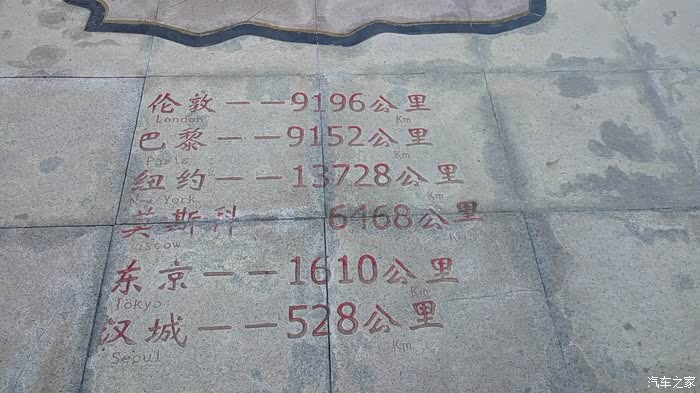 伦敦——9196公里
London Km
巴黎——9152公里
Paris Km
纽约——13728公里
New York Km
莫斯科——6468公里
Moscow Km
东京——1610公里
Tokyo Km
汉城——528公里
Seoul Km
汽车之家